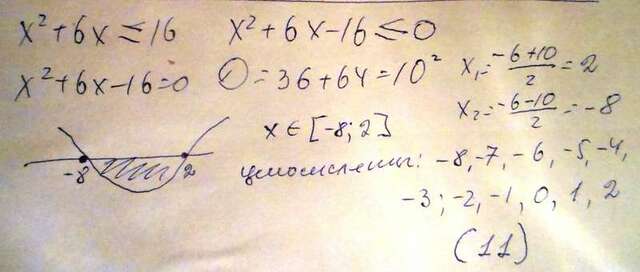 x² + 6x ≤ 16   x² + 6x - 16 ≤ 0
x² + 6x - 16 = 0   D = 36 + 64 = 10²
x₁ = (-6+10)/2 = 2
x₂ = (-6-10)/2 = -8
-8   2
x ∈ [-8; 2]
целочисленных: -8, -7, -6, -5, -4,
-3; -2, -1, 0, 1, 2
(11)